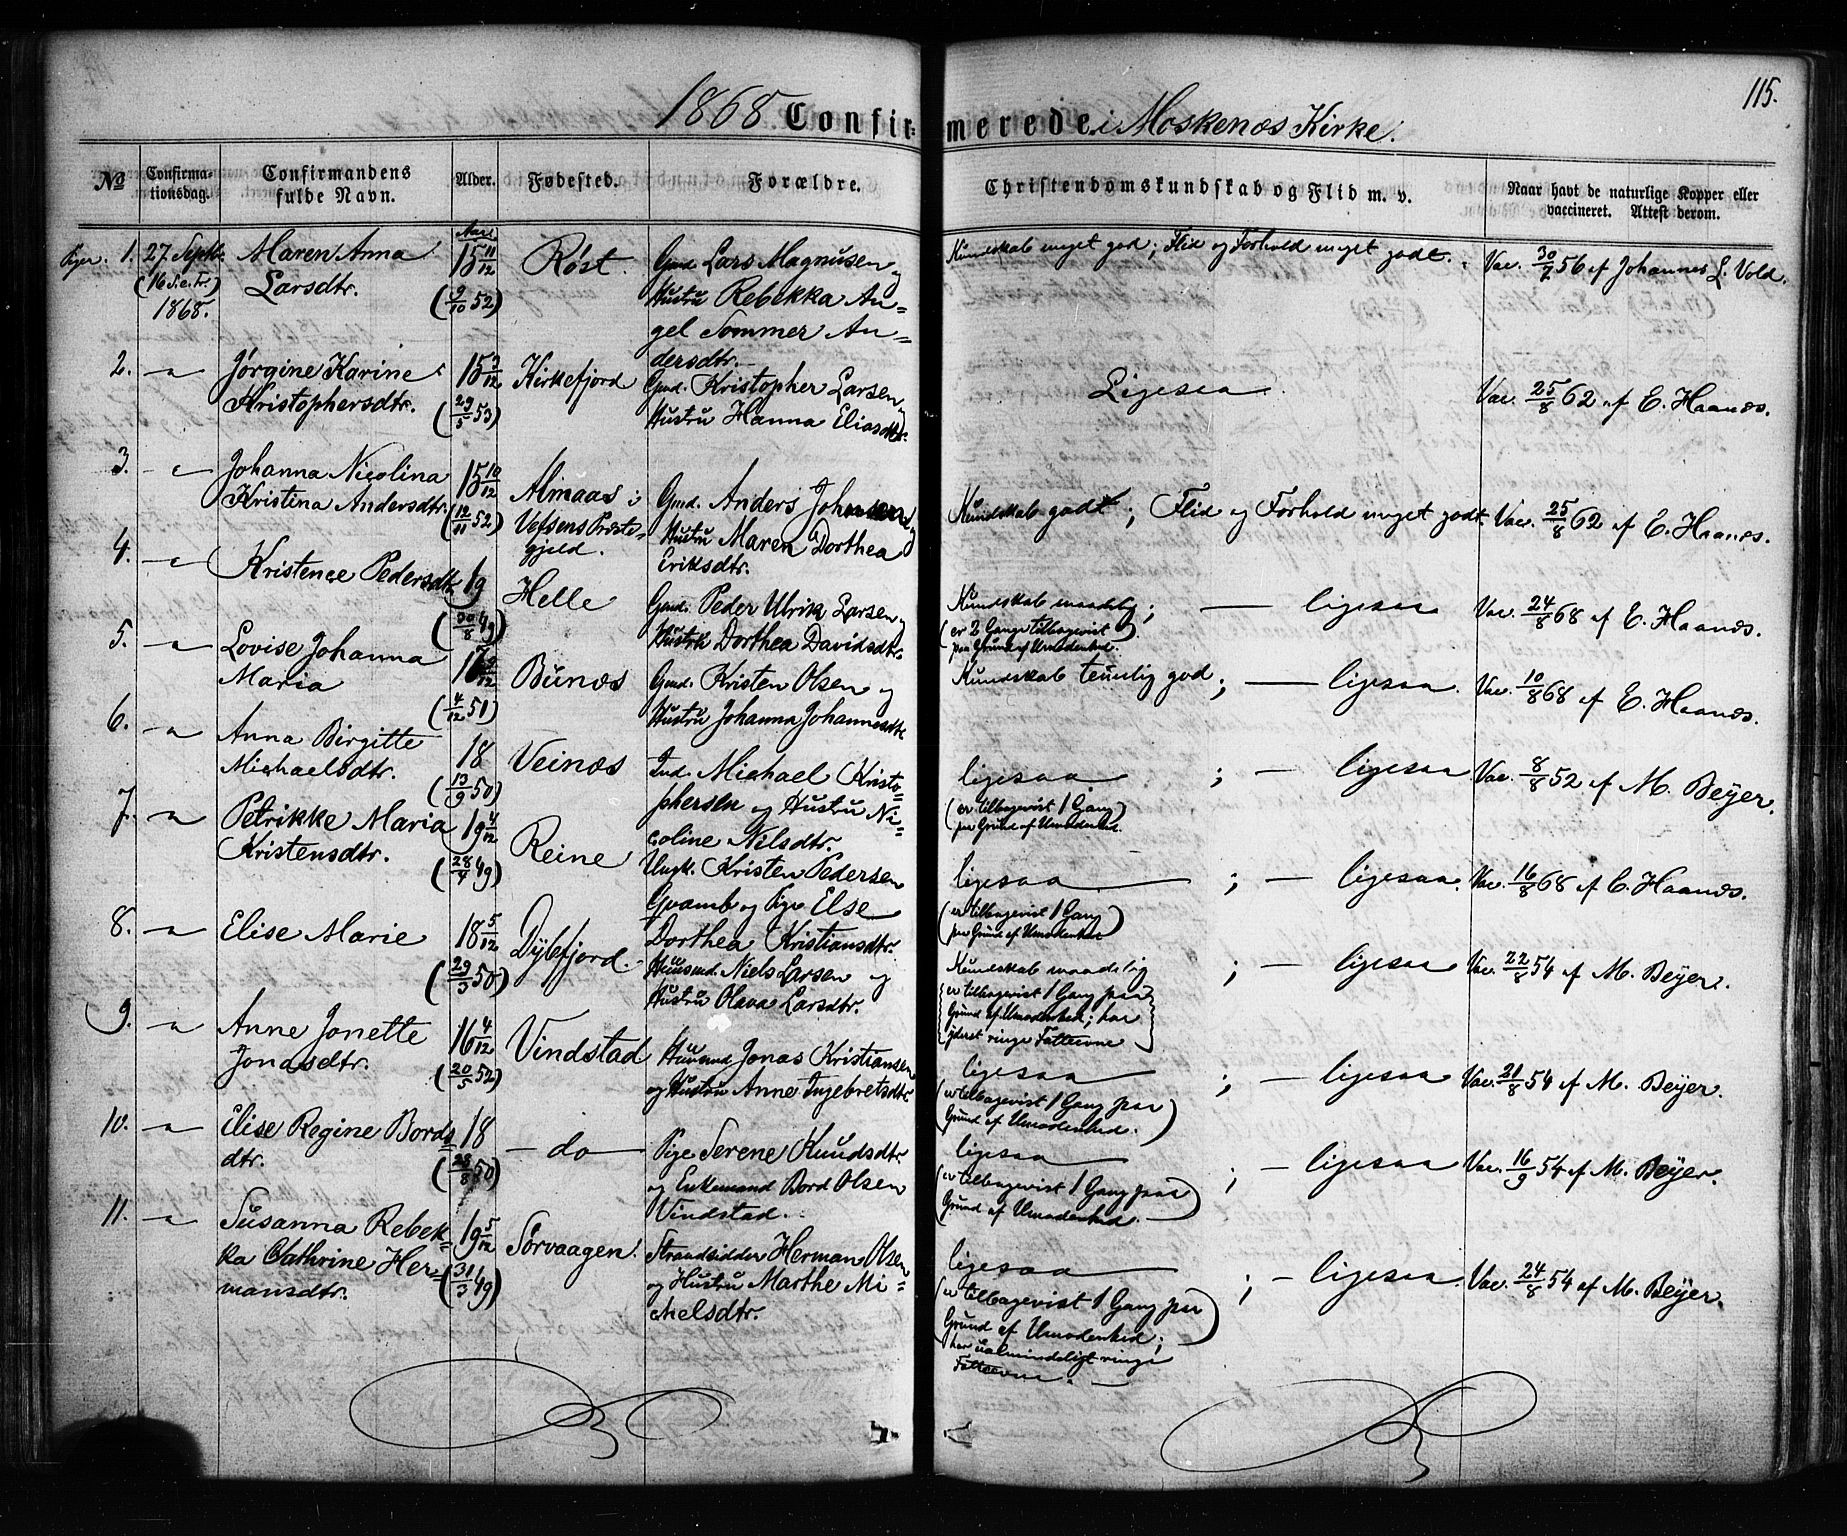 115.
1868. Confirmerede i Moskenæs Kirke.
№ Confirmationsdag. Confirmandens fulde Navn. Alder. Fødested. Forældre. Christendomskundskab og Flid m. v. Naar havt de naturlige Kopper eller vaccineret. Attest derom.
Piger. 1. 27. Septbr. Maren Anna Aar 15 11/12 Røst. Gmd. Lars Magnusen og Kundskab meget god; Flid og Forhold meget godt. Vac. 30/7 56 af Johannes L. Vold.
(16 S. e. Tr.) Larsdtr. (9/10 52) Hustru Rebekka An-
1868. gel Sommer An-
dersdtr.
2. — " — Jørgine Karine 15 3/12 Kirkefjord Gmd. Kristopher Larsen og Ligesaa. Vac. 25/8 62 af E. Haanes.
Kristophersdtr. (29/5 53) Hustru Hanna Eliasdtr.
3. — " — Johanna Nicolina 15 10/12 Almaas i Gmd. Anders Johnsen og Kundskab godt; Flid og Forhold meget godt. Vac. 25/8 62 af E. Haanes.
Kristina Andersdtr. (12/11 52) Vefsens Præste- Hustru Maren Dorthea
gjeld. Eriksdtr.
4. — " — Kristence Pedersdtr. 19 Helle Gmd. Peder Ulrik Larsen og Kundskab maadelig; — ligesaa Vac. 24/8 68 af E. Haanes.
(30/8 49) Hustru Dorthea Davidsdtr. (er 2 Gange tilbagevist
paa Grund af Umodenhed.)
5. — " — Lovise Johanna 16 9/12 Bunæs Gmd. Kristen Olsen og Kundskab temlig god; — ligesaa. Vac. 10/8 68 af E. Haanes.
Maria (4/12 51) Hustru Johanna Johannesdtr.
6. — " — Anna Birgitte 18 Veinæs Ind. Michael Kristo- ligesaa ; — ligesaa Vac. 8/8 52 af M. Beyer.
Michaelsdtr. (13/9 50) phersen og Hustru Ni- (er tilbagevist 1 Gang
coline Nilsdtr. paa Grund af Umodenhed.)
7. — " — Petrikke Maria 19 4/12 Reine Ungk. Kristen Pedersen ligesaa ; — ligesaa. Vac. 16/8 68 af E. Haanes.
Kristensdtr. (28/4 49) Gvamb og Pige Else (er tilbagevist 1 Gang
Dorthea Kristiansdtr. paa Grund af Umodenhed)
8. — " — Elise Marie 18 5/12 Dybfjord. Huusmd. Niels Larsen og Kundskab maadelig ; — ligesaa Vac. 22/8 54 af M. Beyer.
(29/3 50) Hustru Olava Larsdtr. (er tilbagevist 1 Gang paa
Grund af Umodenhed; har
yderst ringe Fatteevne)
9. — " — Anne Jonette 16 4/12 Vindstad Huusmd Jonas Kristiansen ligesaa ; — ligesaa Vac. 21/8 54 af M. Beyer.
Jonasdtr. (20/5 52) og Hustru Anne Ingebretsdtr. (er tilbagevist 1 Gang paa
Grund af Umodenhed.)
10. — " — Elise Regine Bords- 18 — do — Pige Serene Knudsdtr. ligesaa ; — ligesaa Vac. 16/9 54 af M. Beyer.
dtr. (28/8 50) og Enkemand Bord Olsen (er tilbagevist 1 Gang paa
Vindstad. Grund af Umodenhed.)
11. — " — Susanna Rebek- 19 5/12 Sørvaagen. Strandsidder Herman Olsen ligesaa ; — ligesaa. Vac. 24/8 54 af M. Beyer.
ka Cathrine Her- (31/3 49) og Hustru Marthe Mi- (er tilbagevist 1 Gang paa
mansdtr. chelsdtr. Grund af Umodenhed;)
har ualmindeligt ringe
Fatteevne.